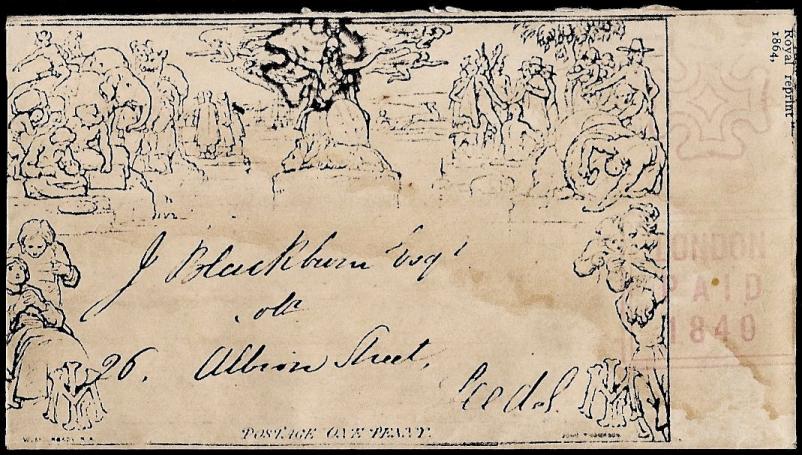 Royal reprint
1864,
J Blackburn Esqr
26, Albion Street,
Leeds.
LONDON
PAID
1840
POSTAGE ONE PENNY.
JOHN THOMPSON